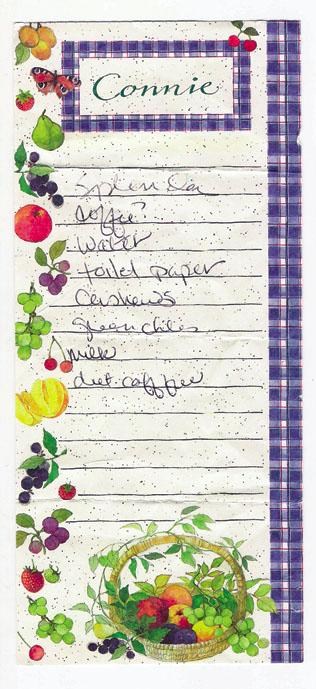 Connie
Splenda
coffee?
Water
toilet paper
Cashews
green chiles
milk
diet caff free